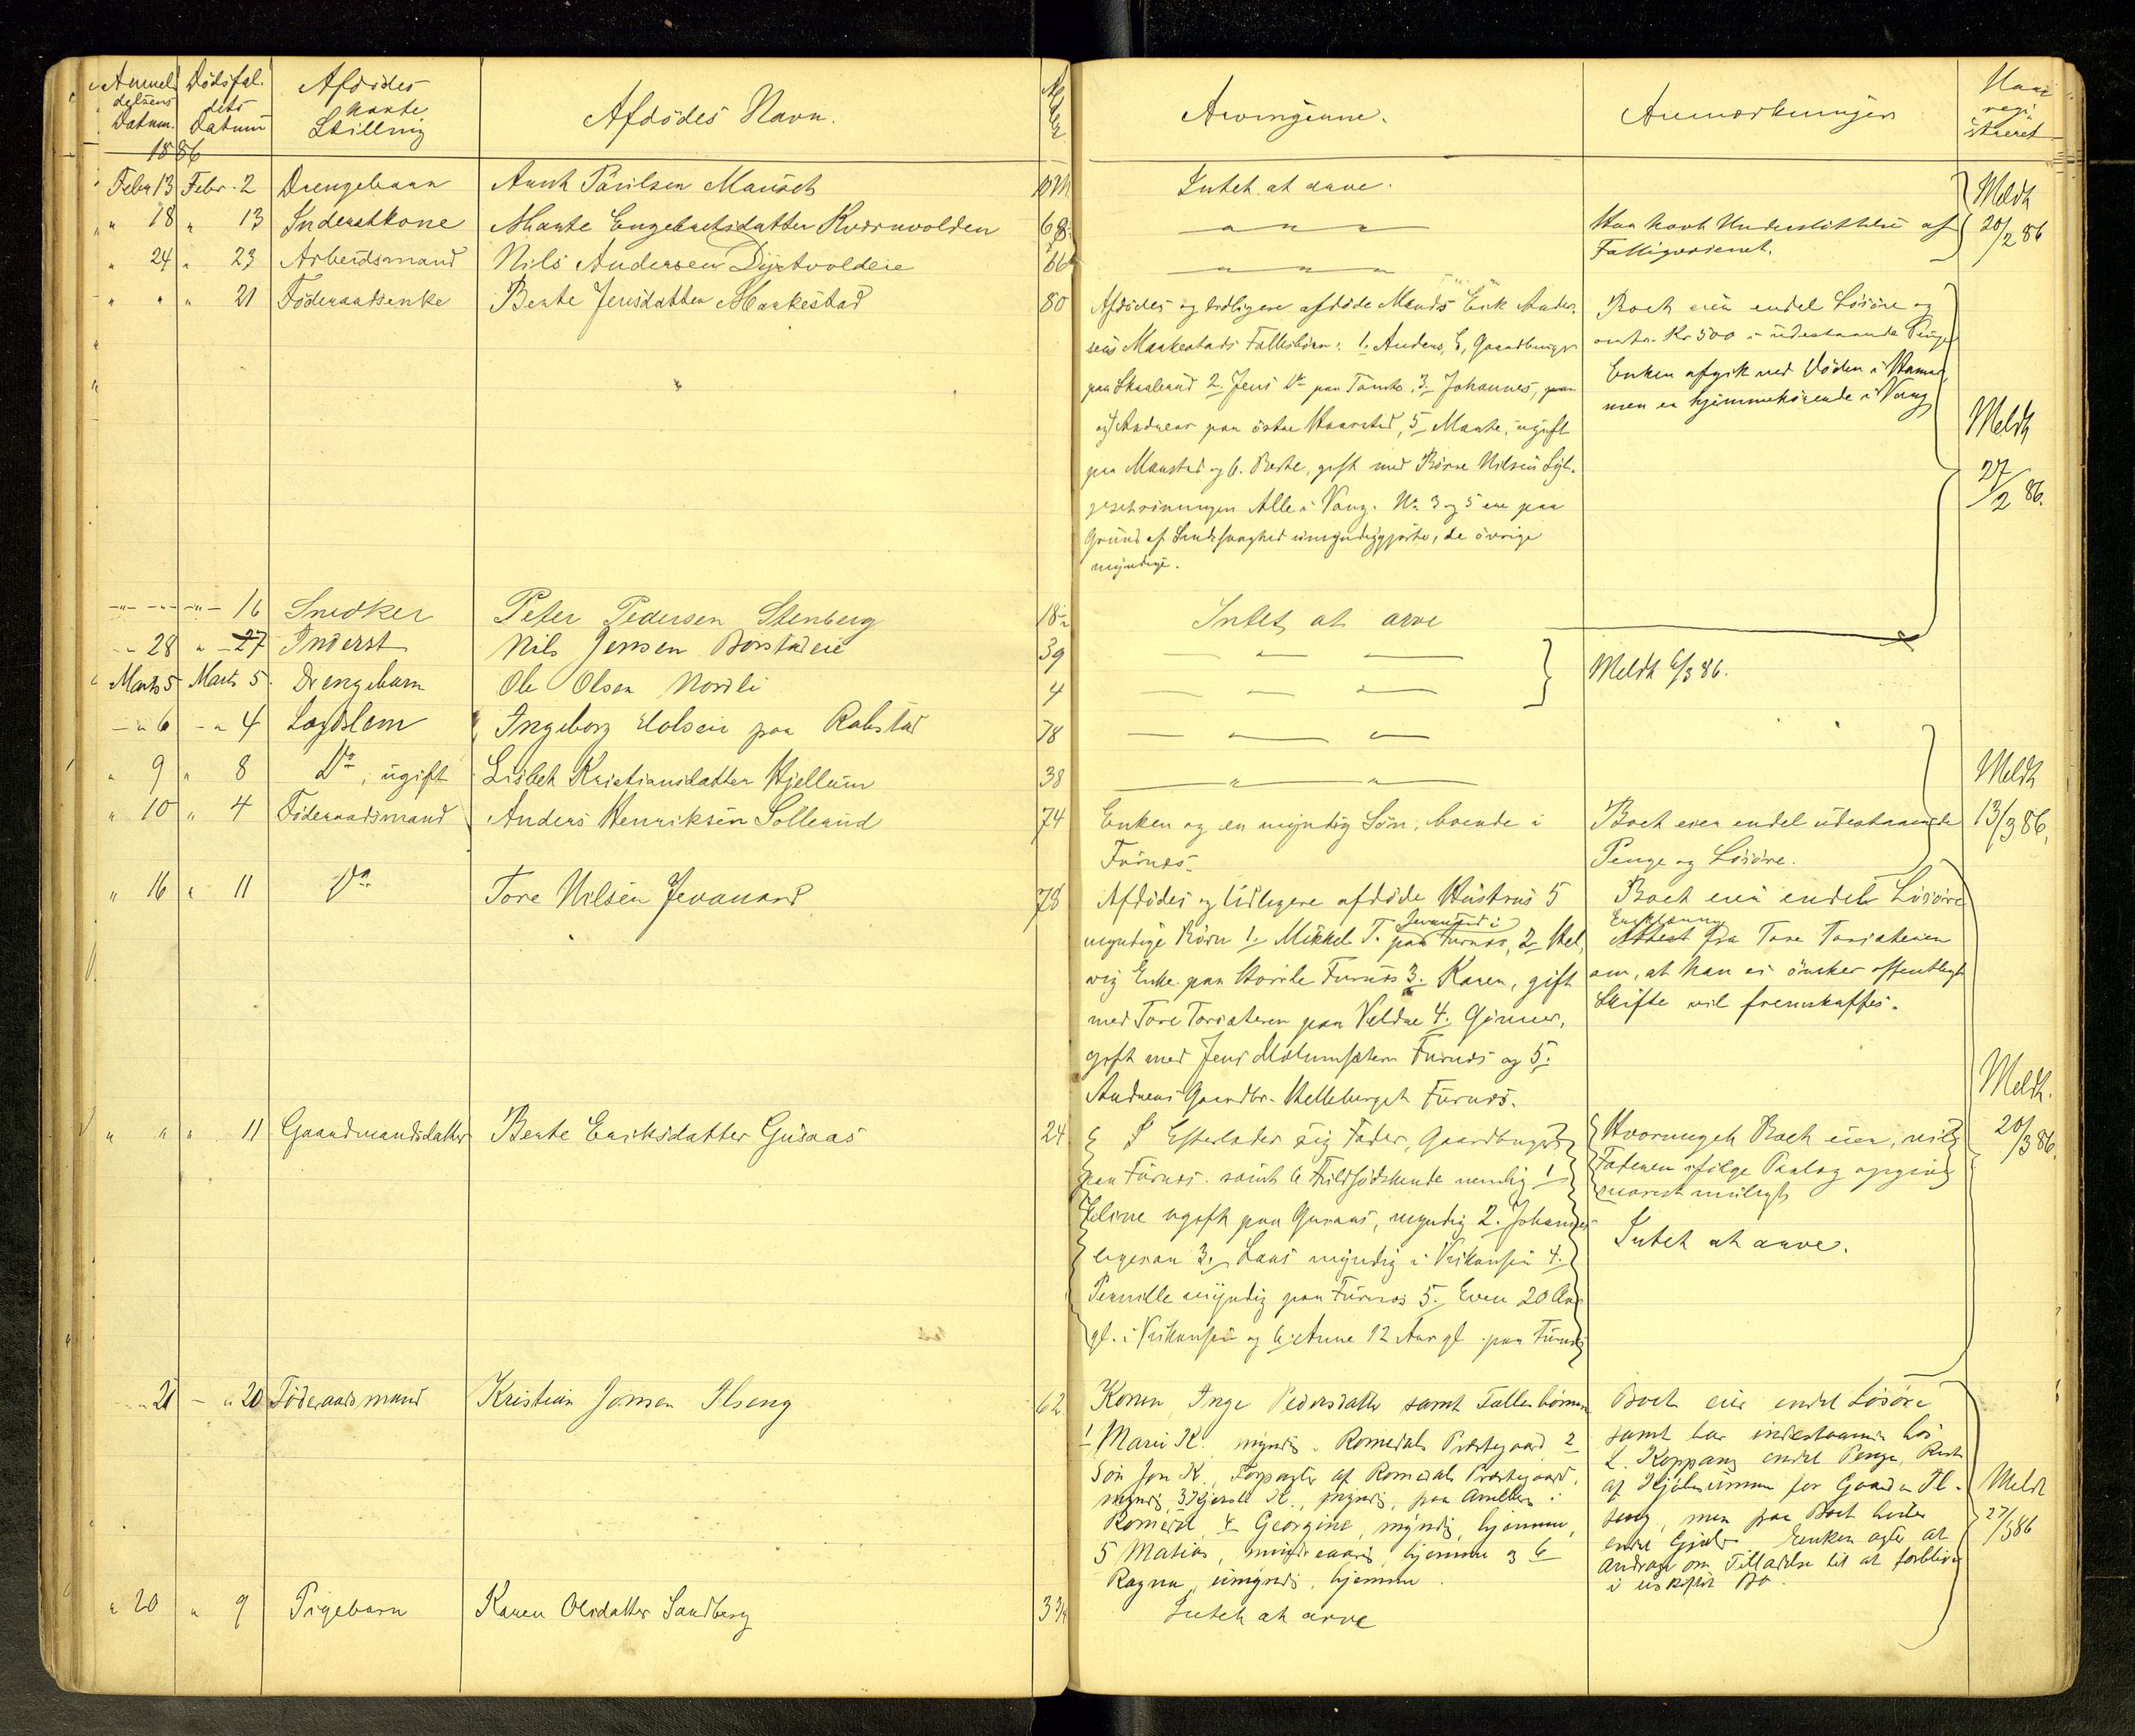 Anmel
delsens
Datum.
Dødsfal.
dets
Datum
Afdødes
Stilling
Afdødes Navn.
Alder
Arvingerne.
Anmærkninger
Naar
regi
streret
1886
Febr 13 Febr. 2 Drengebarn Mausets Intet at arve. Meldt
" 18 " 13 Inderstkone Marte Engebretsdatter Kværnvolden 68 — " — " — Har havt Understøttelse af 20/2 86
Fattigvæsenet.
" 24 " 23 Arbeidsmand Nils Andersen 66 — " — " —
" " " 21 Føderaadsenke Berte Jensdatter Maakestad 80 Afdødes og tidligere afdøde Mands Erik Ander-
sens Maakestads Fællesbørn: 1. Anders E, Gaardbruger
paa 2. Jens Do paa 3. Johannes, paa
og 4 Andreas paa østre 5 Marte, ugift
paa og 6. Berte, gift med Nilsen
Alle i Vang. No 3 og 5 ere paa
Grund af Sindssvaghed umyndiggjorte, de øvrige
myndige.
Boet eier endel Løsøre og
omtr. Kr 500 i udestaaende Penge
Enken afgik ved Døden i Hamar,
men er hjemmehørende i Vang
Meldt
27/2 86.
— " — — " — 16 Snedker Peter Pedersen Stenberg 18 Intet at arve
— " 28 " — 27 Inderst Nils Jensen Børstadeie 39 — " —
Marts 5 Marts 5 Drengebarn Ole Olsen Nordli 4 — " — " — Meldt 6/3 86.
— " 6 — " 4 Lægdslem Ingeborg paa 78 — " — " —
" 9 " 8 Do, ugift Lisbet Kristiansdatter Hjellum 38 — " — " — Meldt
" 10 " 4 Føderaadsmand Anders Henriksen Sollerud 74 Enken og en myndig Søn, boende i Boet eier endel udestaaende 13/3 86,
Furnes. Penge og Løsøre.
" 16 " 11 Do Tore Nilsen Jevanord 78 Afdødes og tidligere afdøde Hustrus 5
myndige Børn 1. Mikkel T. paa Furnes, 2. Hel,
vig Enke paa Furnes 3. Karen, gift
med Tore Torsæteren paa Veldre 4. Gunner,
gift med Jens Furnes og 5.
Andreas Gaardbr. Helleberget Furnes.
Boet eier endel Løsøre
Erklæring
Attest fra Tore Torsæteren
om, at han ei ønsker offentligt
Skifte vil fremskaffes.
Meldt.
" " " 11 Gaardmandsdatter Berte Eriksdatter Gusaas 24 Efterlader sig Fader, Gaardbruger
paa Furnes. samt 6 Fuldsødskende nemlig 1
Eline ugift paa Gusaas, myndig 2. Johannes
ligesaa 3. Lars myndig i 4.
Pernille myndig paa Furnes 5. Even 20 Aar
gl. i og 6. Anne 12 Aar gl. paa Furnes
Hvorvidt Boet eier, vil
Faderen ifølge Paalæg opgive
snarest muligt
Intet at arve.
20/3 86.
— " 21 — " 20 Føderaadsmand Kristian Jonsen Ilseng 62 Konen Inge Pedersdatter samt Fællesbørnene
1 Marie K. myndig. Romedals Præstegaard 2
Søn Jon K., Forpagter af Romedals Præstegaard,
myndig, 3 K., myndig, paa i
Romedal, 4 Georgine, myndig, hjemme,
5 Matias, mindreaarig, hjemme og 6
Ragna, umyndig, hjemme.
Boet eier endel Løsøre
samt har indestaaende hos
L. Koppang endel Penge, Rest
af Kjøbesummen for Gaarden Il-
seng, men paa Boet hviler
endel Gjæld. Enken agter at
andrage om Tilladelse til at forblive
i uskiftet Bo.
Meldt
27/3 86
" 20 " 9 Pigebarn Karen Olsdatter Sandberg 3 3/4 Intet at arve